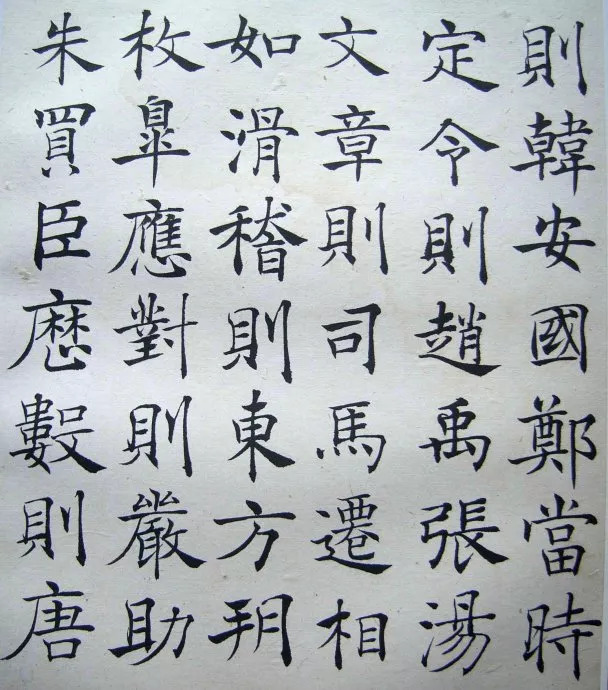 則韓安國鄭當時
定令則趙禹張湯
文章則司馬遷相
如滑稽則東方朔
枚皋應對則嚴助
朱買臣歷數則唐